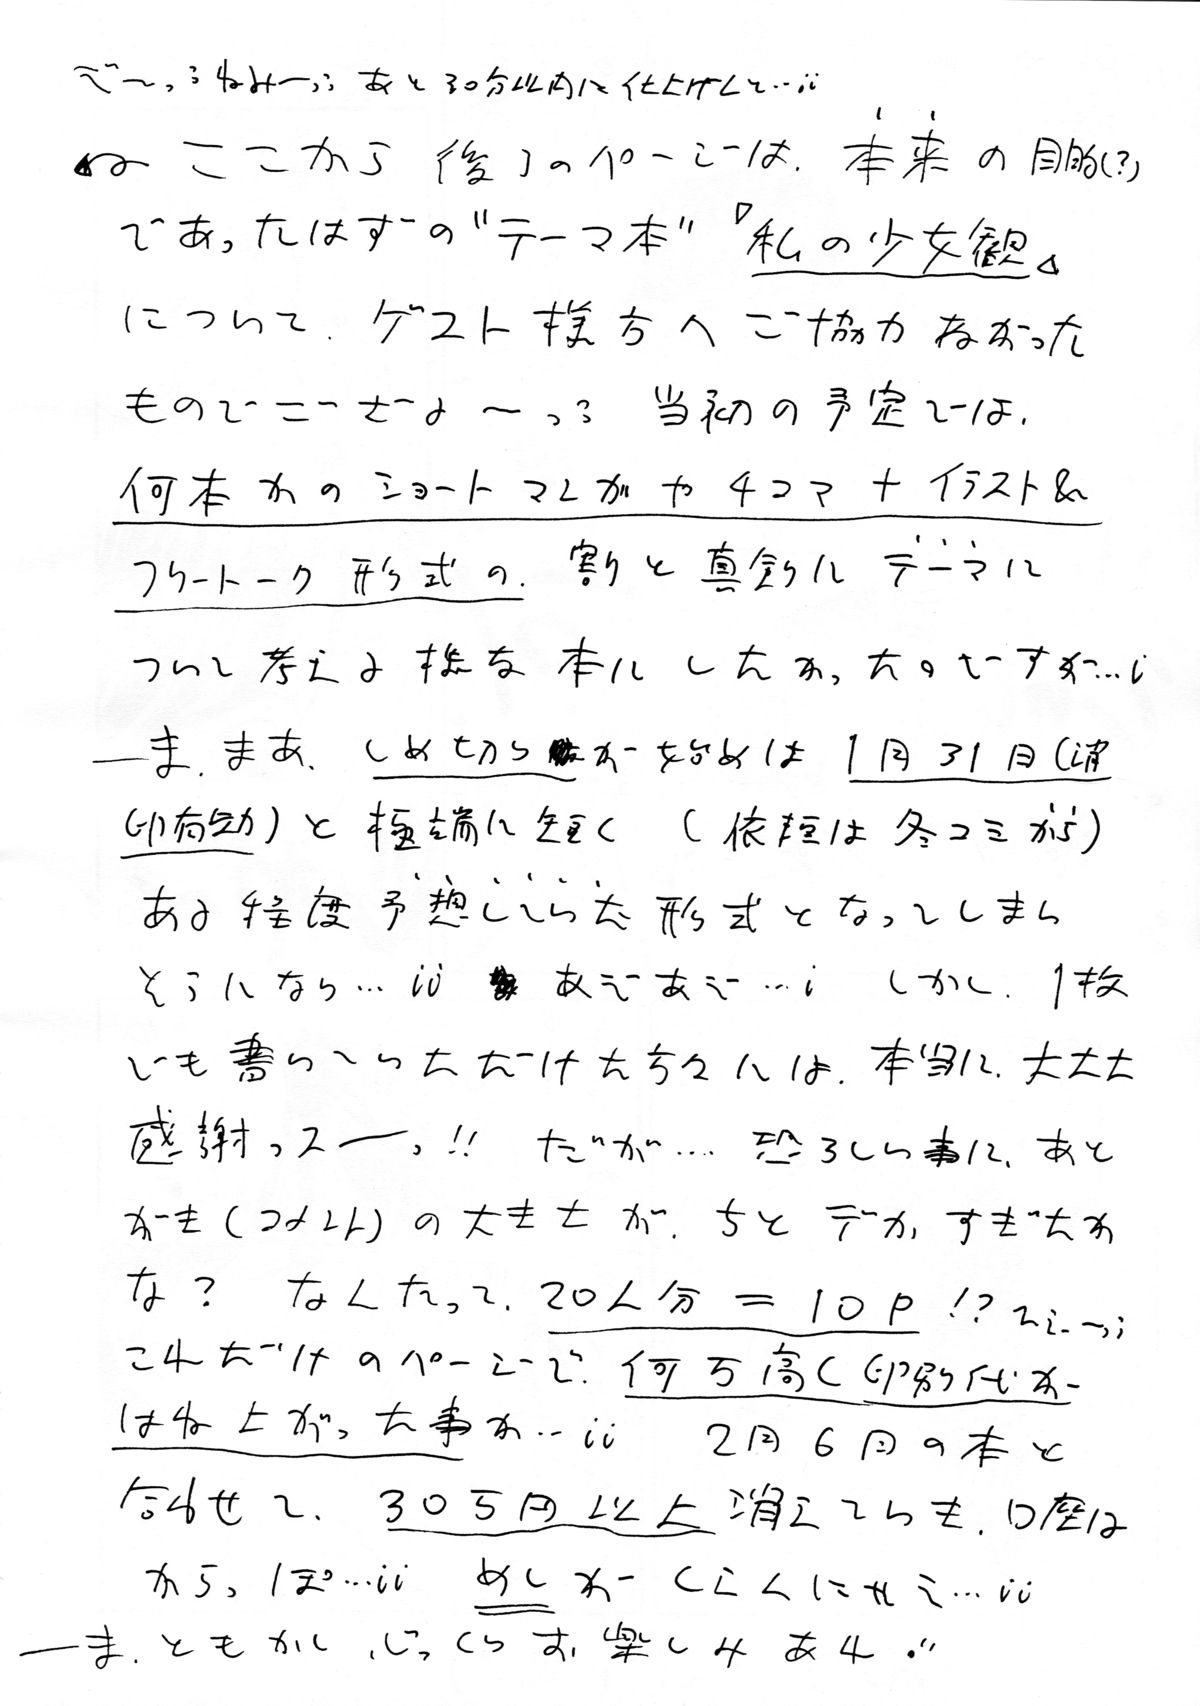 で〜っ ねみーっ あと30分以内に仕上げんと…ii
ここから後ろのページは、本来の目的(?)
であったはずの"テーマ本"『私の少女観』
について、ゲスト様方へご協力ねがった
ものでございますよ〜っ 当初の予定では、
何本かのショートマンガや4コマ+イラスト&
フリートーク形式の、割と真剣にテーマに
ついて考える様な本にしたかったのですが…i
ーま、まあ、しめ切りが始めは1月31日(消
印有効)と極端に短く(依頼は冬コミから)
ある程度予想していた形式となってしまい
そうになり…ii あぜあぜ…i しかし、1枚
でも書いていただけた方々には、本当に、大大大
感謝っスーっ!! だが… 恐ろしい事に、あと
がき(コメント)の大きさが、ちとデカすぎたか
な? なんたって、20人分=10P!?
これだけのページで、何万高く印刷代が
はね上がった事か…ii 2月6日の本と
合わせて、30万円以上消えていき、口座は
からっぽ…ii めしがくえんにゃえ…ii
ーま、ともかく、じっくりお楽しみあれ